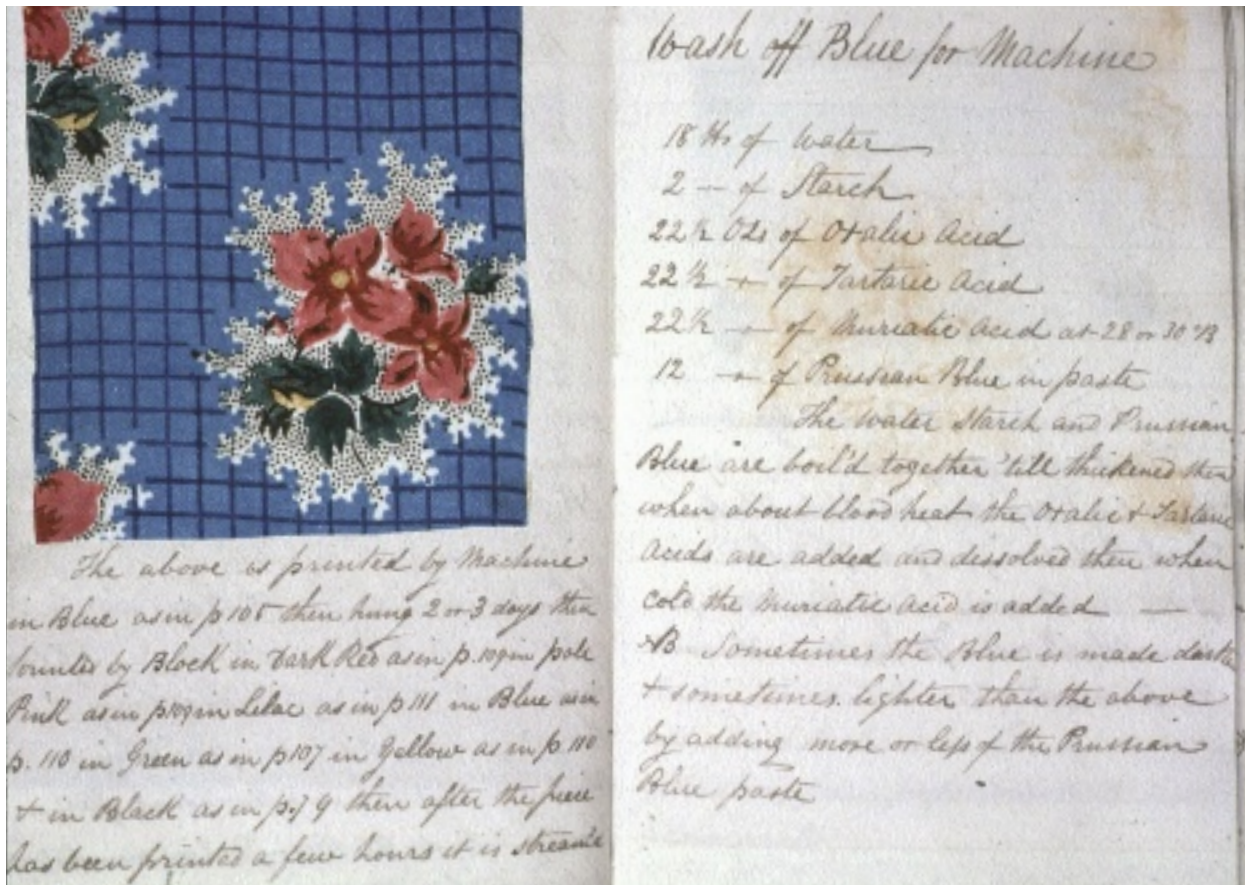 The above is printed by Machine
in Blue as in p 105 then hung 2 or 3 days then
printed by Block in Dark Red as in p. 109 in pale
Pink as in p109 in Lilac as in p 111 in Blue as in
p. 110 in Green as in p107 in Yellow as in p. 110
+ in Black as in p. 79 then after the piece
has been printed a few hours it is stream'd
Wash off Blue for Machine
18 lbs of Water
2 - of Starch
22½ Ozs of Oxalic Acid
22½ - of Tartaric Acid
22½ - of Muriatic Acid at 28 or 30 °B
12 - of Prussian Blue in paste
The Water Starch and Prussian
Blue are boil'd together 'till thickened then
when about blood heat the Oxalic + Tartaric
Acids are added and dissolved then when
cold the Muriatic Acid is added —
NB Sometimes the Blue is made darker
+ sometimes lighter than the above
by adding more or less of the Prussian
Blue paste